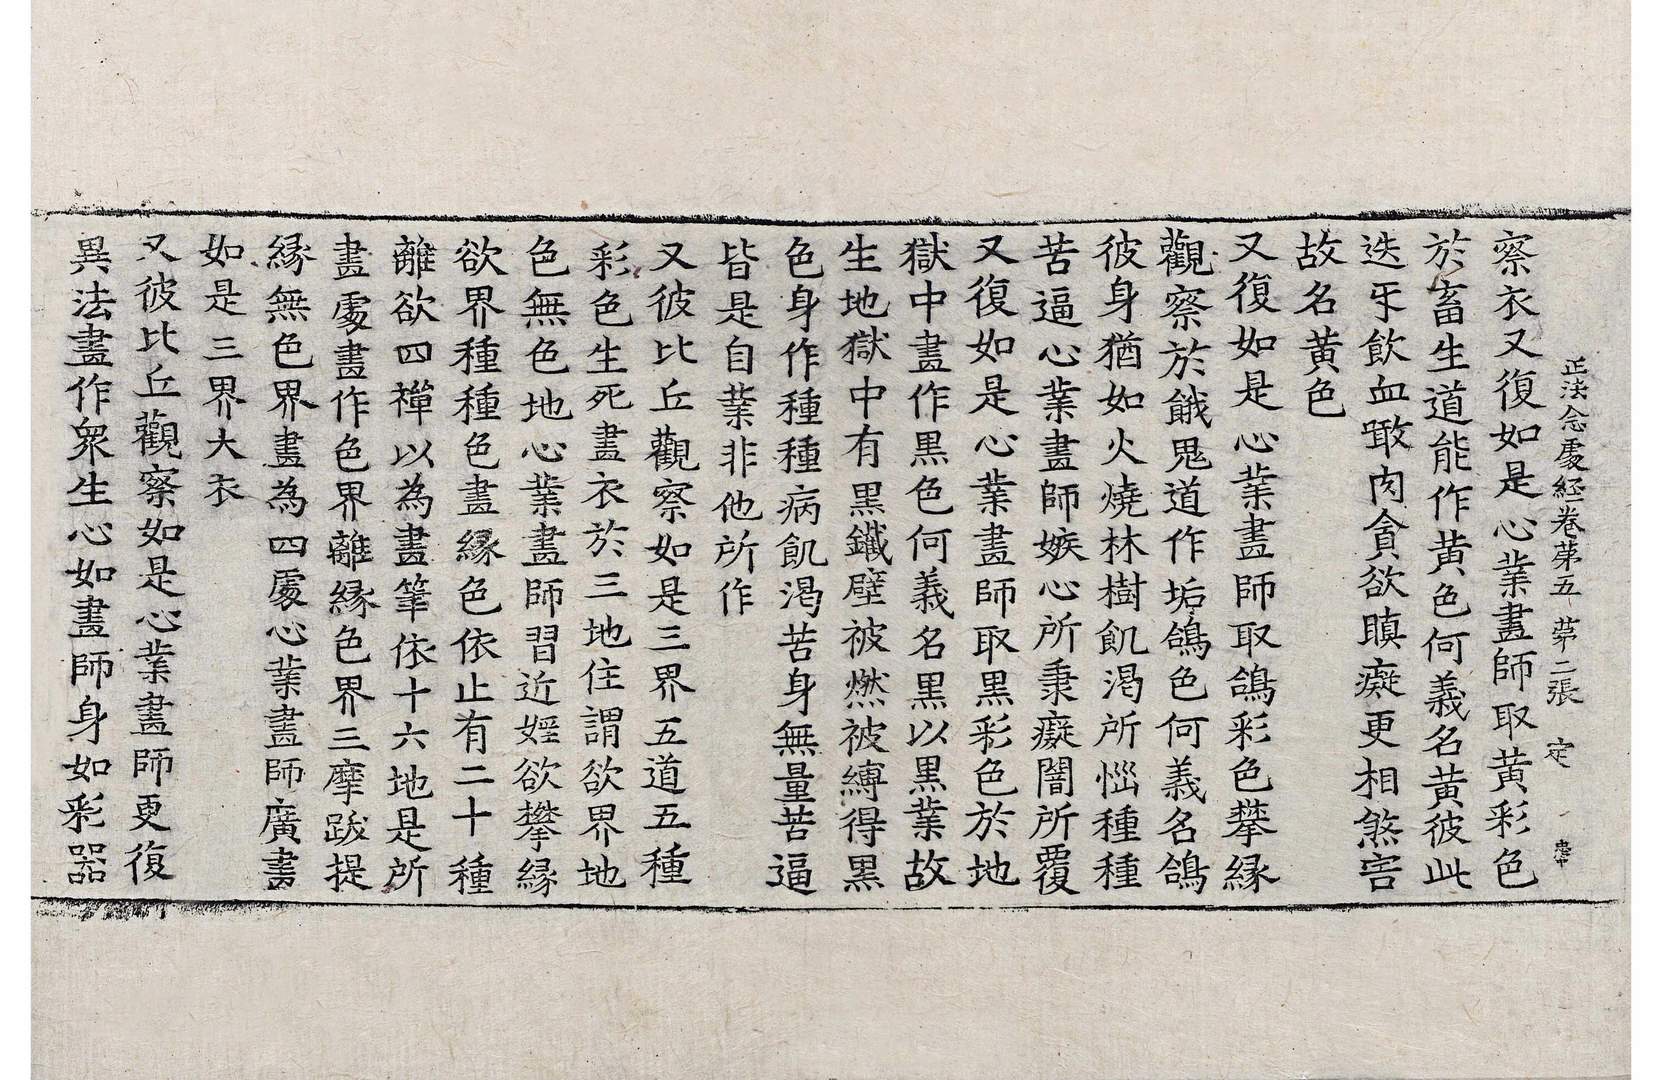 正法念處經卷第五 第二張 定
察衣又復如是心業畫師取黃彩色
於畜生道能作黃色何義名黃彼此
迭互飲血噉肉貪欲瞋癡更相煞害
故名黃色
又復如是心業畫師取鴿彩色攀縁
觀察於餓鬼道作垢鴿色何義名鴿
彼身猶如火燒林樹飢渇所惱種種
苦逼心業畫師嫉心所秉癡闇所覆
又復如是心業畫師取黑彩色於地
獄中畫作黑色何義名黑以黑業故
生地獄中有黑鐵壁被燃被縛得黑
色身作種種病飢渇苦身無量苦逼
皆是自業非他所作
又彼比丘觀察如是三界五道五種
彩色生死畫衣於三地住謂欲界地
色無色地心業畫師習近婬欲攀縁
欲界種種色畫縁色依止有二十種
離欲四禪以為畫筆依十六地是所
畫處畫作色界離縁色界三摩跋提
縁無色界畫為四處心業畫師廣畫
如是三界大衣
又彼比丘觀察如是心業畫師更復
異法畫作衆生心如畫師身如彩器